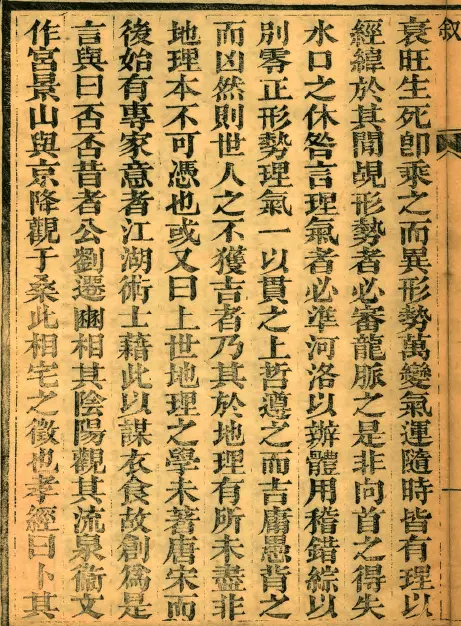 叙
衰旺生死卽乘之而異形勢萬變氣運隨時皆有理以
經緯於其間覘形勢者必審龍脈之是非向首之得失
水口之休咎言理氣者必準河洛以辦體用稽錯綜以
別零正形勢理氣一以貫之上哲遵之而吉庸愚背之
而凶然則世人之不獲吉者乃其於地理有所未盡非
地理本不可憑也或又曰上世地理之學未著唐宋而
後始有專家意者江湖術士藉此以謀衣食故創爲是
言與曰否否昔者公劉遷豳相其陰陽觀其流泉衞文
作宮景山與京降觀于桑此相宅之徵也孝經曰卜其